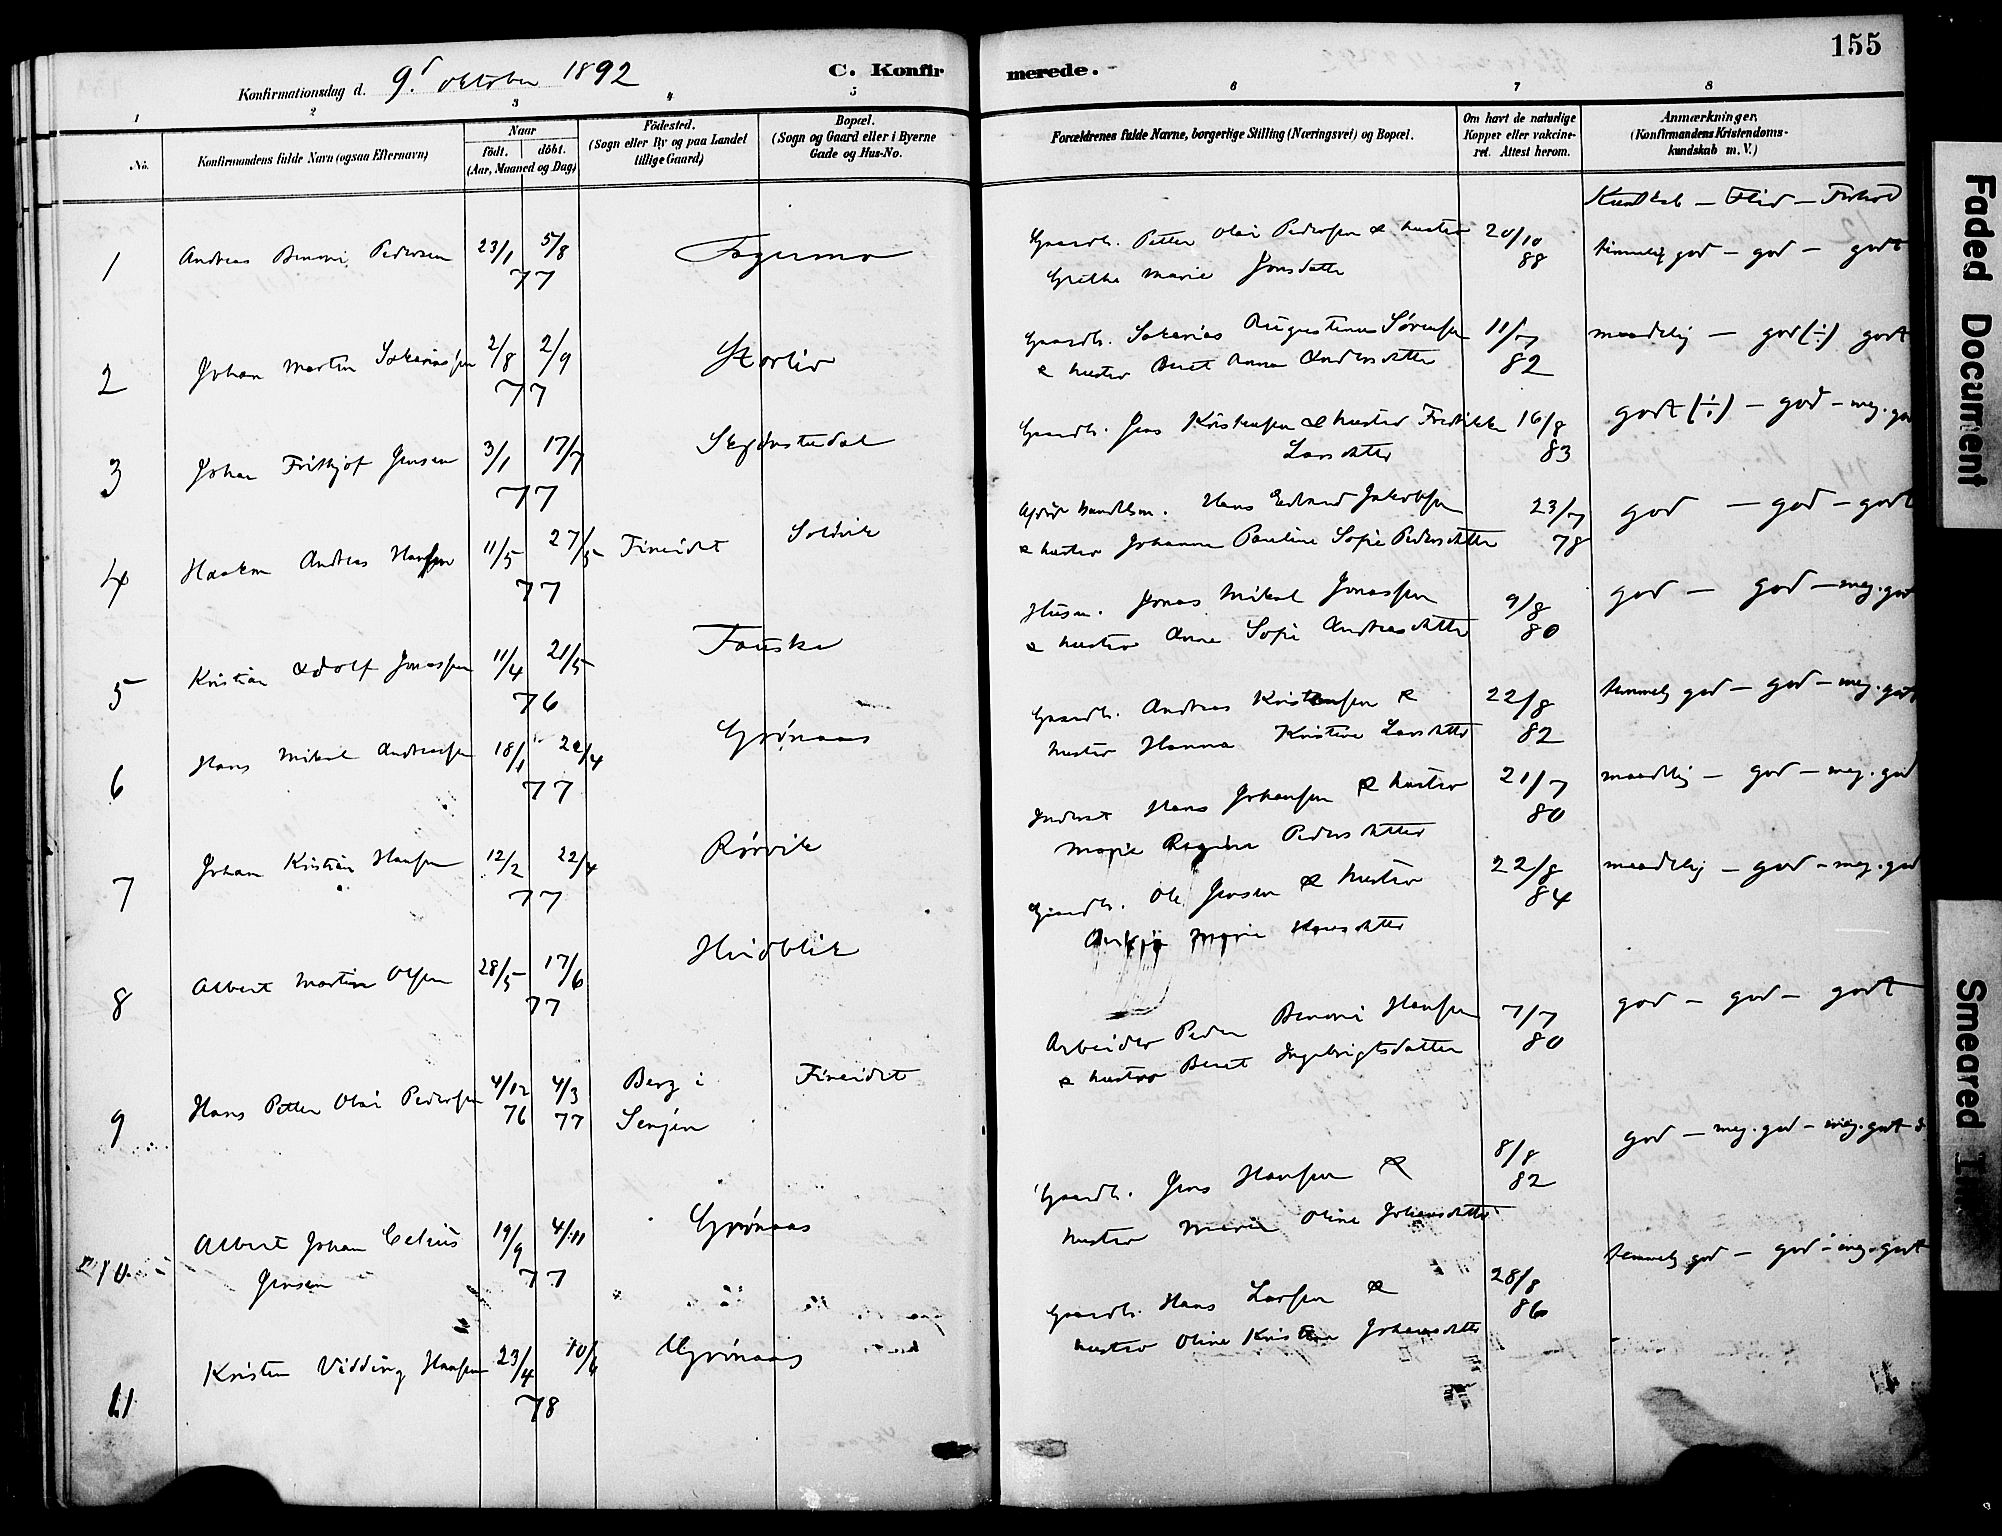 155
Konfirmationsdag d. 9d oktober 1892
C. Konfirmerede.
1 2 3 4 5 6 7 8
No.
Konfirmandens fulde Navn (ogsaa Efternavn)
Naar
født. døbt.
(Aar, Maaned og Dag)
Fødested.
(Sogn eller By og paa Landet
tillige Gaard)
Bopæl.
(Sogn og Gaard eller i Byerne
Gade og Hus-No.
Forældrenes fulde Navne, borgerlige Stilling (Næringsvei) og Bopæl.
Om havt de naturlige
Kopper eller vakcine-
ret. Attest herom.
Anmærkninger,
(Konfirmandens Kristendoms-
kundskab m. V.)
Kundskab — Flid — Forhold
1 Andreas Benoni Pedersen 23/1 5/8 77 Fagermo
Gaardb. Petter Olai Pedersen & hustro
Grethe Marie Jonsdatter
20/10 88
temmelig god — god — godt
2 Johan Martin Sakariassen 2/8 2/9 77 Storlid
Gaardb. Sakarias Augustinus Sørensen
& hustro Beret Anna Andersdatter
11/7 82
maadelig — god (÷) godt
3 Johan Frithjof Jensen 3/1 17/7 77
Gaardb. Jens Kristensen & hustro Fredrikke
Larsdatter
16/8 83
godt (÷) — god — meg. god
4 Haakon Andreas Hansen 11/5 27/5 77 Fineidet Soldvik
Hans Edvard Jakobsen
& hustro Johanna Pauline Sofie Pedersdatter
23/7 78
god — god — godt
5 Kristian Adolf Jonassen 11/4 21/5 76 Fauske
Husm. Jonas Mikal Jonassen
& hustro Anne Sofie Andreasdatter
9/8 80
god — god — meg. godt
6 Hans Mikal Andreassen 18/1 22/4 77 Grønaas
Gaardb. Andreas Kristensen &
hustro Hanna Kristine Larsdatter
22/8 82
temmelig god — god — meg. godt
7 Johan Kristian Hansen 12/2 22/4 77 Rørvik
Inderst Hans Johansen & hustro
Marie Regina Pedersdatter
21/7 80
maadelig — god — meg. god
8 Albert Martin Olsen 28/5 17/6 77 Hvidblik
Gaardb. Ole Jensen & hustro
Marie Hansdatter
22/8 84
maadelig — god — meg. god
9 Hans Petter Olai Pedersen 4/12 76 4/3 77 Berg i
Senjen Fineidet
Arbeider Peder Benoni Hansen
& hustro Beret Ingebrigtsdatter
7/7 80
god — god — godt
10 Albert Johan Celius
Jensen 19/9 4/11 77 Grønaas
Gaardb. Jens Hansen &
hustro Maria Oline Johansdatter
8/8 82
god — meg. god — meg. godt
11 Kristen Vidding Hansen 23/4 10/6 78 Grønaas
Gaardb. Hans Larsen &
hustro Oline Kristina Johansdatter
28/8 86
temmelig god — god — meg. godt
Faded Document
Smeared Ink